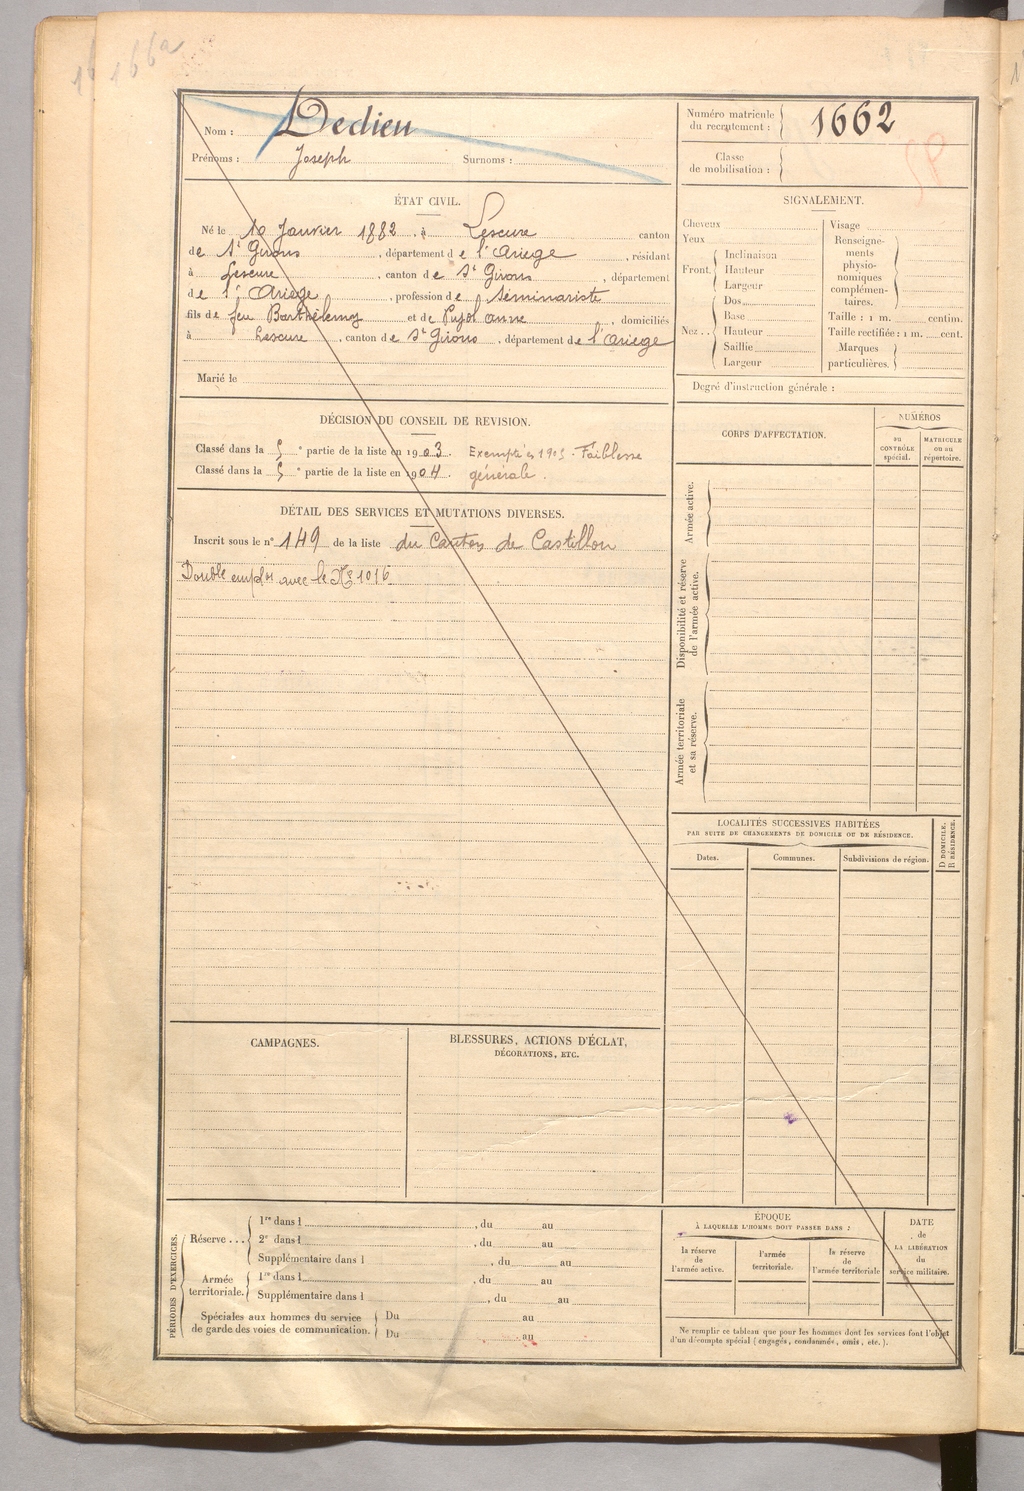 1662
Nom : Dedieu
Prénoms : Joseph Surnoms :
Numéro matricule du recrutement : 1662
Classe de mobilisation :
ÉTAT CIVIL.
Né le 10 Janvier 1882, à Lescure canton
de St Girons, département de l'Ariege, résidant
à Lescure, canton de St Girons, département
de l'Ariège, profession de Séminariste
fils de feu Barthélemy et de Pujol Anne, domiciliés
à Lescure, canton de St Girons, département de l'Ariege
Marié le
SIGNALEMENT.
Cheveux
Yeux
Front. Inclinaison
Hauteur
Largeur
Nez.. Dos
Base
Hauteur
Saillie
Largeur
Visage
Renseigne-
ments
physio-
nomiques
complémen-
taires.
Taille : 1 m. centim.
Taille rectifiée : 1 m. cent.
Marques
particulières.
Degré d'instruction générale :
DÉCISION DU CONSEIL DE REVISION.
Classé dans la 5e partie de la liste en 1903. Exempté en 1903. Faiblesse
Classé dans la 5e partie de la liste en 1904. générale.
DÉTAIL DES SERVICES ET MUTATIONS DIVERSES.
Inscrit sous le n° 149 de la liste du Canton de Castillon
Double emploi avec le No 1016
CORPS D'AFFECTATION.
NUMÉROS
AU CONTRÔLE spécial.
MATRICULE ou au répertoire.
Armée active.
Disponibilité et réserve de l'armée active.
Armée territoriale et sa réserve.
LOCALITÉS SUCCESSIVES HABITÉES
PAR SUITE DE CHANGEMENTS DE DOMICILE OU DE RÉSIDENCE.
Dates.
Communes.
Subdivisions de région.
D DOMICILE.
R RÉSIDENCE.
CAMPAGNES.
BLESSURES, ACTIONS D'ÉCLAT,
DÉCORATIONS, ETC.
PÉRIODES D'EXERCICES.
Réserve ... 1re dans l , du au
2e dans l , du au
Supplémentaire dans l , du au
Armée territoriale. 1re dans l , du au
Supplémentaire dans l , du au
Spéciales aux hommes du service
de garde des voies de communication.
Du au
Du au
ÉPOQUE
À LAQUELLE L'HOMME DOIT PASSER DANS :
la réserve
de
l'armée active.
l'armée
territoriale.
la réserve
de
l'armée territoriale
DATE
de
LA LIBÉRATION
du
service militaire.
Ne remplir ce tableau que pour les hommes dont les services font l'objet
d'un décompte spécial (engagés, condamnés, omis, etc.).